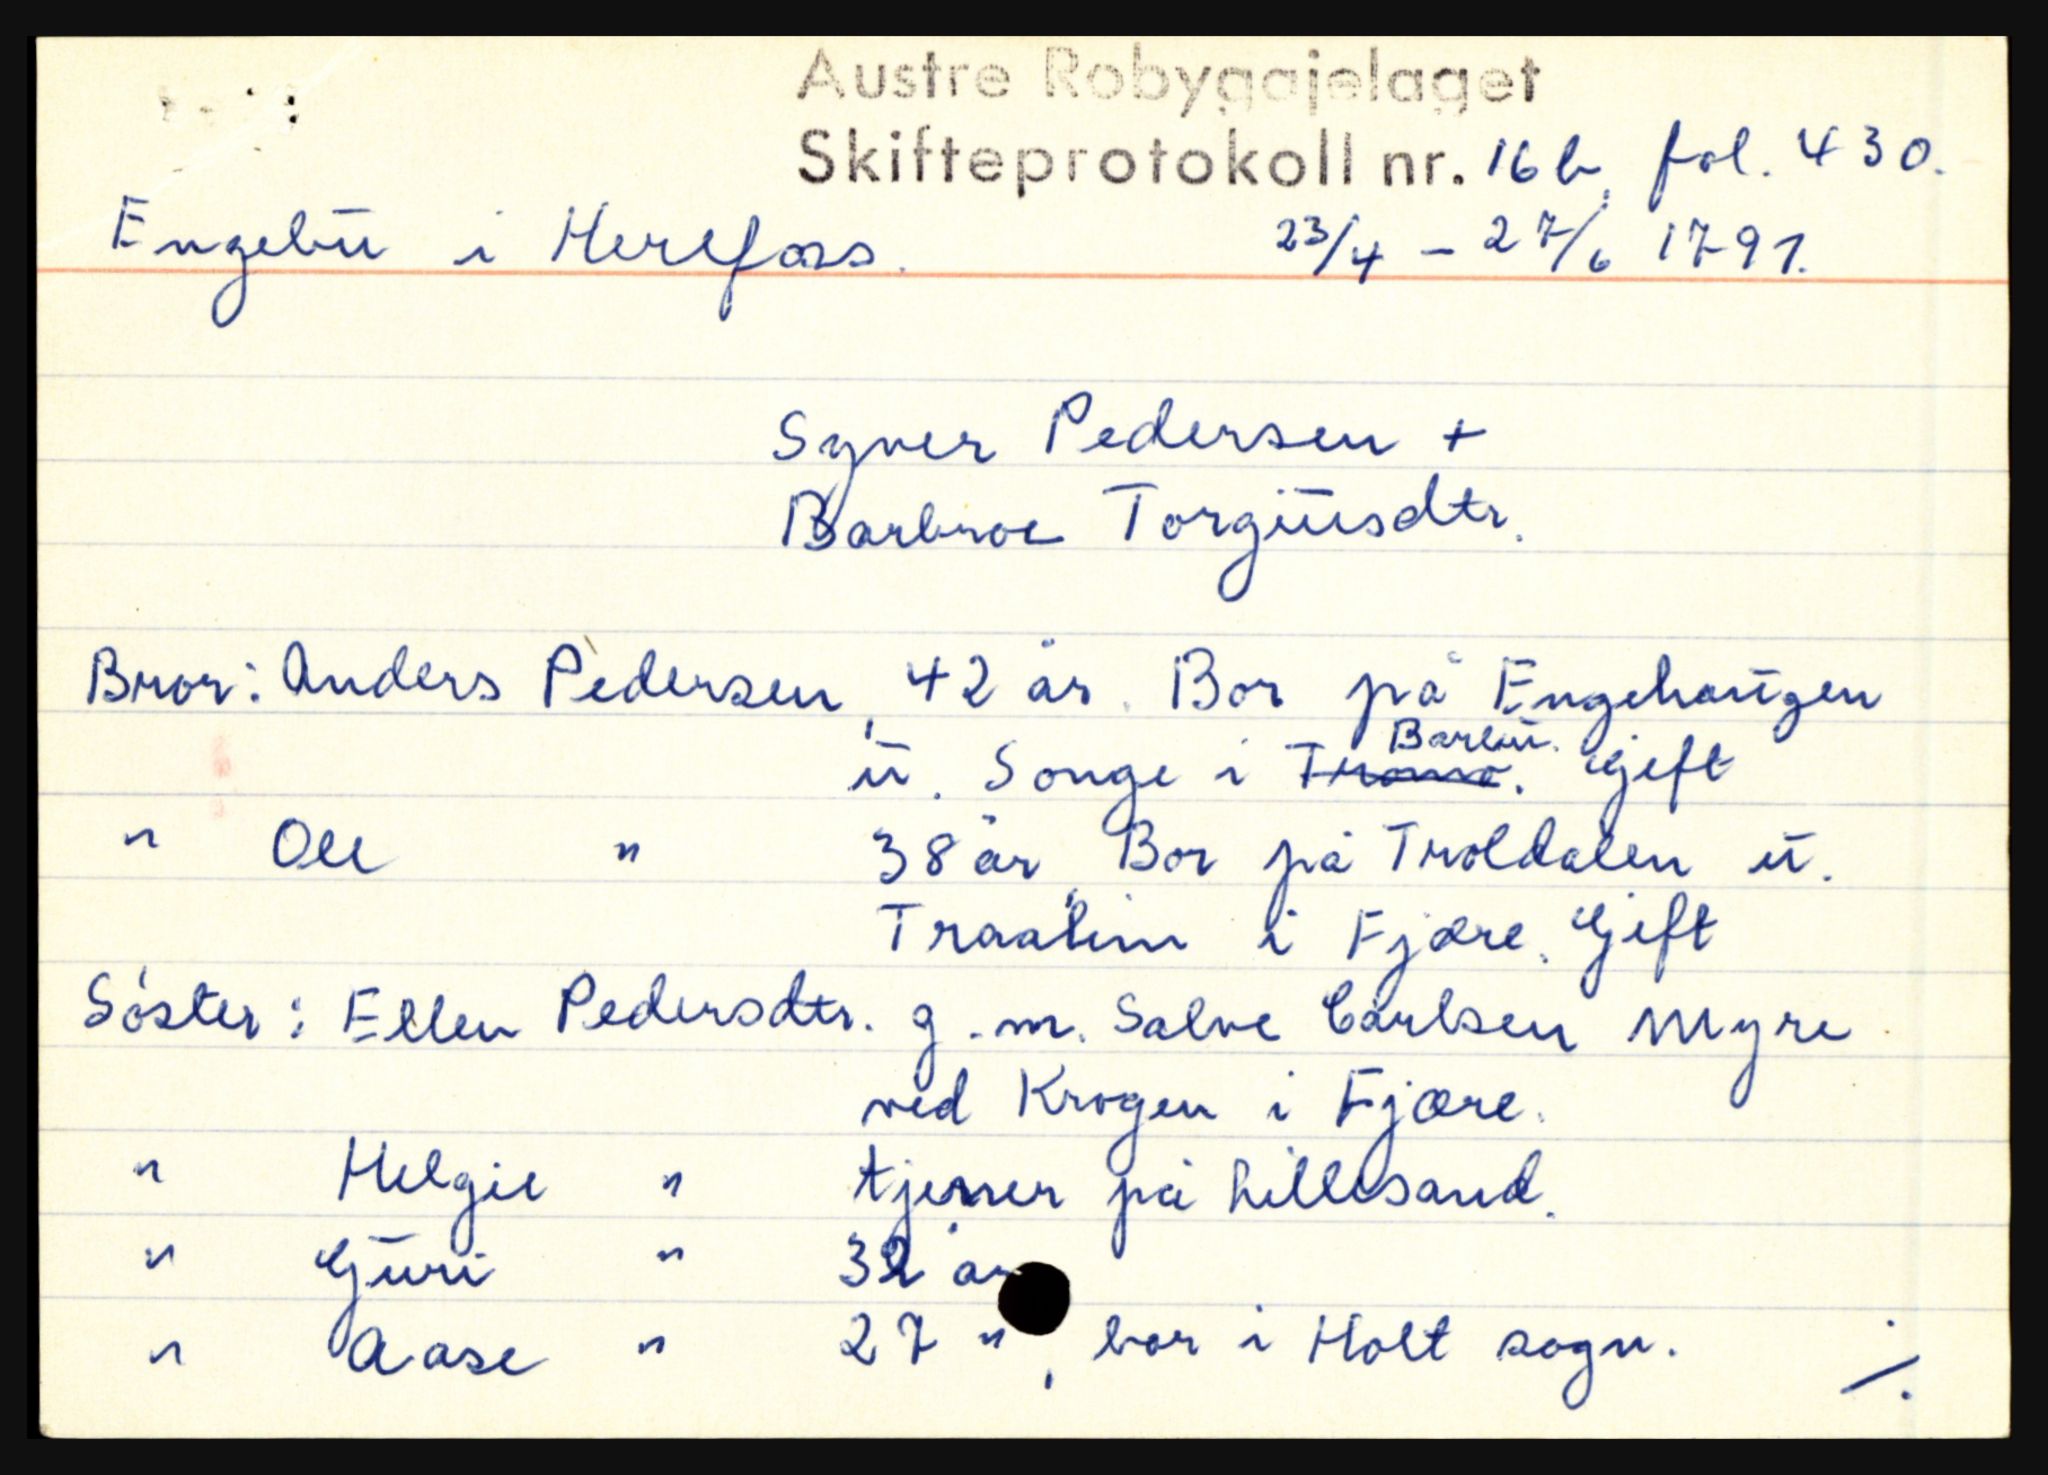 Austre Robygdjelaget
Skifteprotokoll nr. 16b, fol. 430.
Engebu i Herefoss. 23/4 - 27/6 1791.
Syver Pedersen +
Barbroe Torgiusdtr.
Bror: Anders Pedersen, 42 år. Bor på Engehaugen
u. Songe i Tromø. Barbu. Gjeft
" Ole " 38 år, Bor på Troldalen u.
Traalim i Fjære. Gjeft
Søster: Ellen Pedersdtr. g.m. Salve Carlsen Myre
ved Krogen i Fjære.
" Helgie " tjener på Lillesand.
" Guri " 32 år
" Aase " 27 ", bor i Holt sogn. ./.